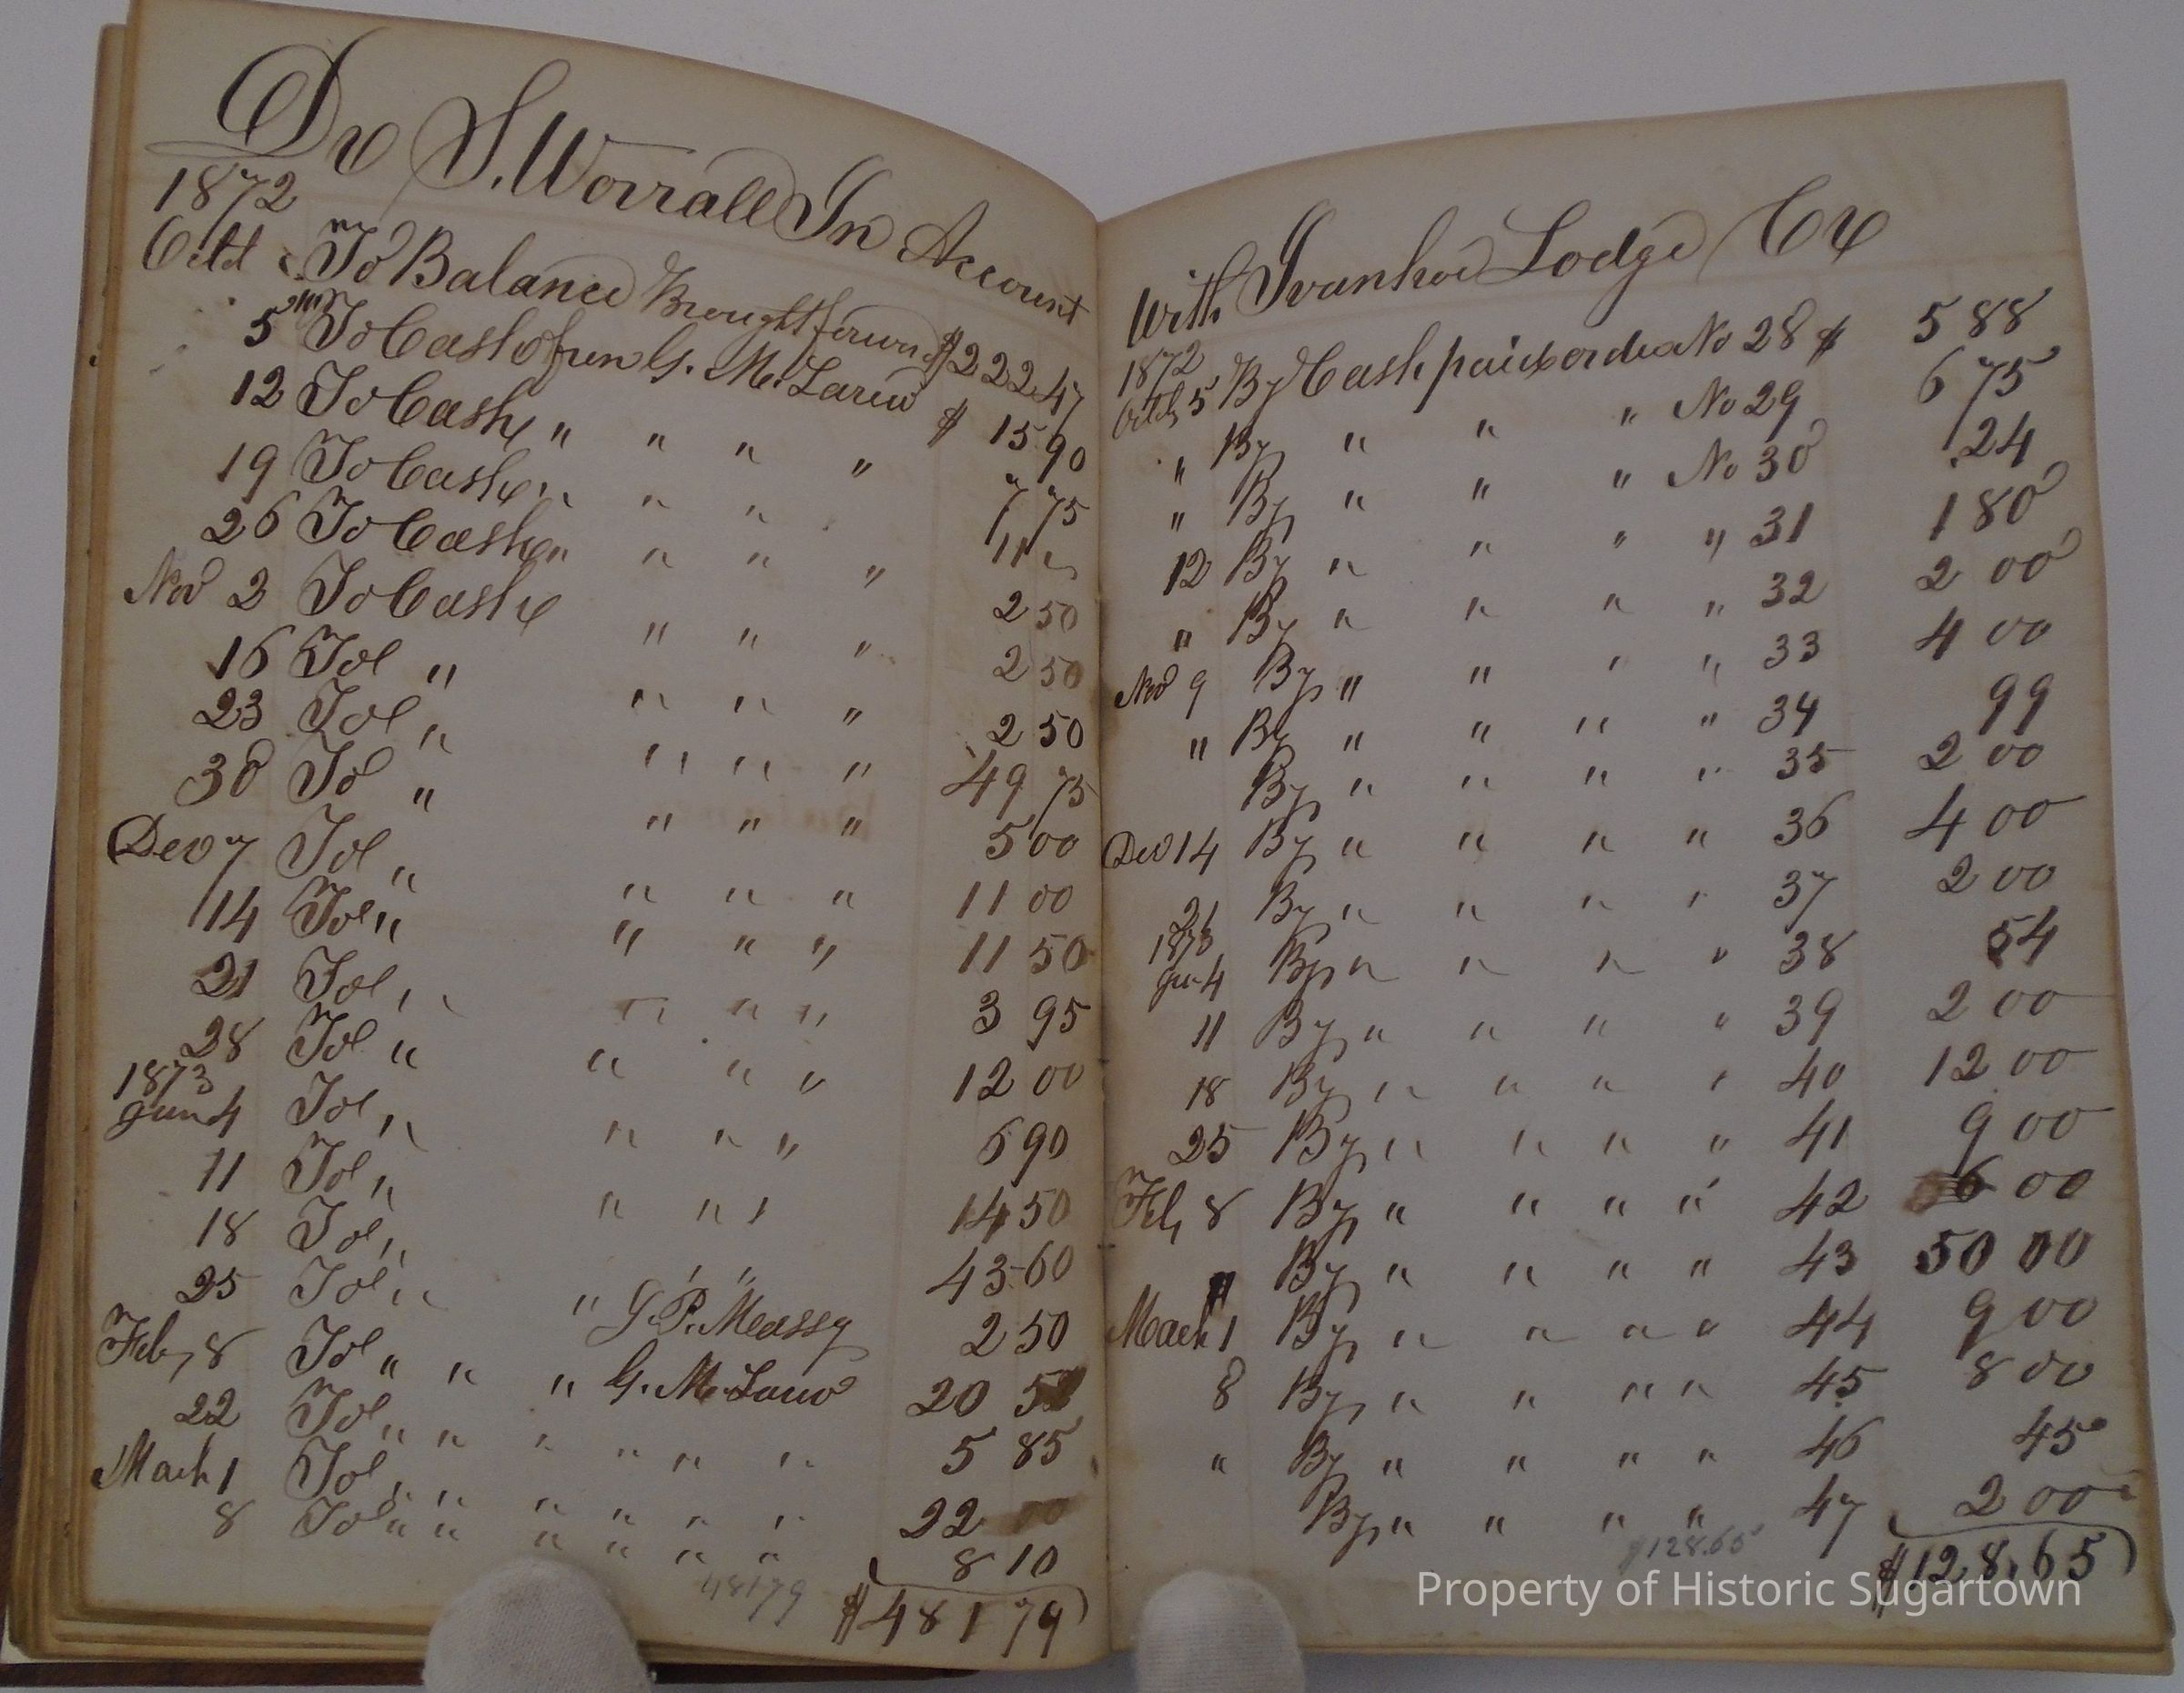 Dr S. Worrall In Account
1872
Octd To Balance Brought forward $222.47
5 To Cash of fun G. McLarin $ 15 90
12 To Cash " " " " 7 75
19 To Cash " " " 11 "
26 To Cash " " " " 2 50
Nov 2 To Cash " " " 2 50
16 To " " " " 2 50
23 To " " " " 49 75
30 To " " " " 5 00
Dec 7 To " " " " 11 00
14 To " " " " 11 50
21 To " " " " 3 95
28 To " " " " 12 00
1873
Jan 4 To " " " " 6 90
11 To " " " " 14 50
18 To " " " 43 60
25 To " " G. P. Massy 2 50
Feb, 8 To " " " G. Mc 20 5
22 To " " " " " " 5 85
March 1 To " " " " " " 22 00
8 To " " " " " " 8 10
48179
$481 79
With Ivanhoe Lodge Cr
1872
Octd, 5 By Cash paid order No 28 $ 5 88
" By " " " No 29 6 75
" By " " " No 30 .24
12 By " " " " 31 1 80
" By " " " " 32 2 00
Nov 9 By " " " " 33 4 00
" By " " " " 34 99
By " " " " 35 2 00
Dec 14 By " " " " 36 4 00
21 By " " " " 37 2 00
1873
Jan 4 By " " " " 38 54
11 By " " " " 39 2 00
18 By " " " " 40 12 00
25 By " " " " 41 9 00
Feb, 8 By " " " " 42 6 00
" By " " " " 43 50 00
March 1 By " " " " 44 9 00
8 By " " " " 45 8 00
" By " " " " 46 45
By " " " " 47 2 00
$128.65
$128.65
Property of Historic Sugartown